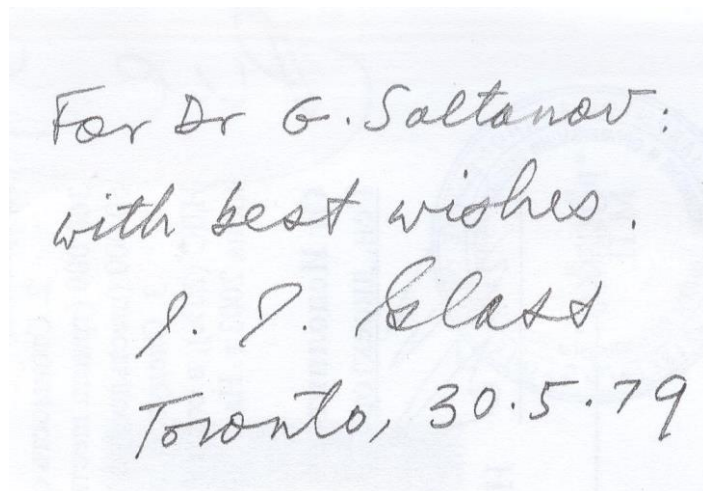 For Dr G. Saltanov:
with best wishes.
I. I. Glass
Toronto, 30.5.79